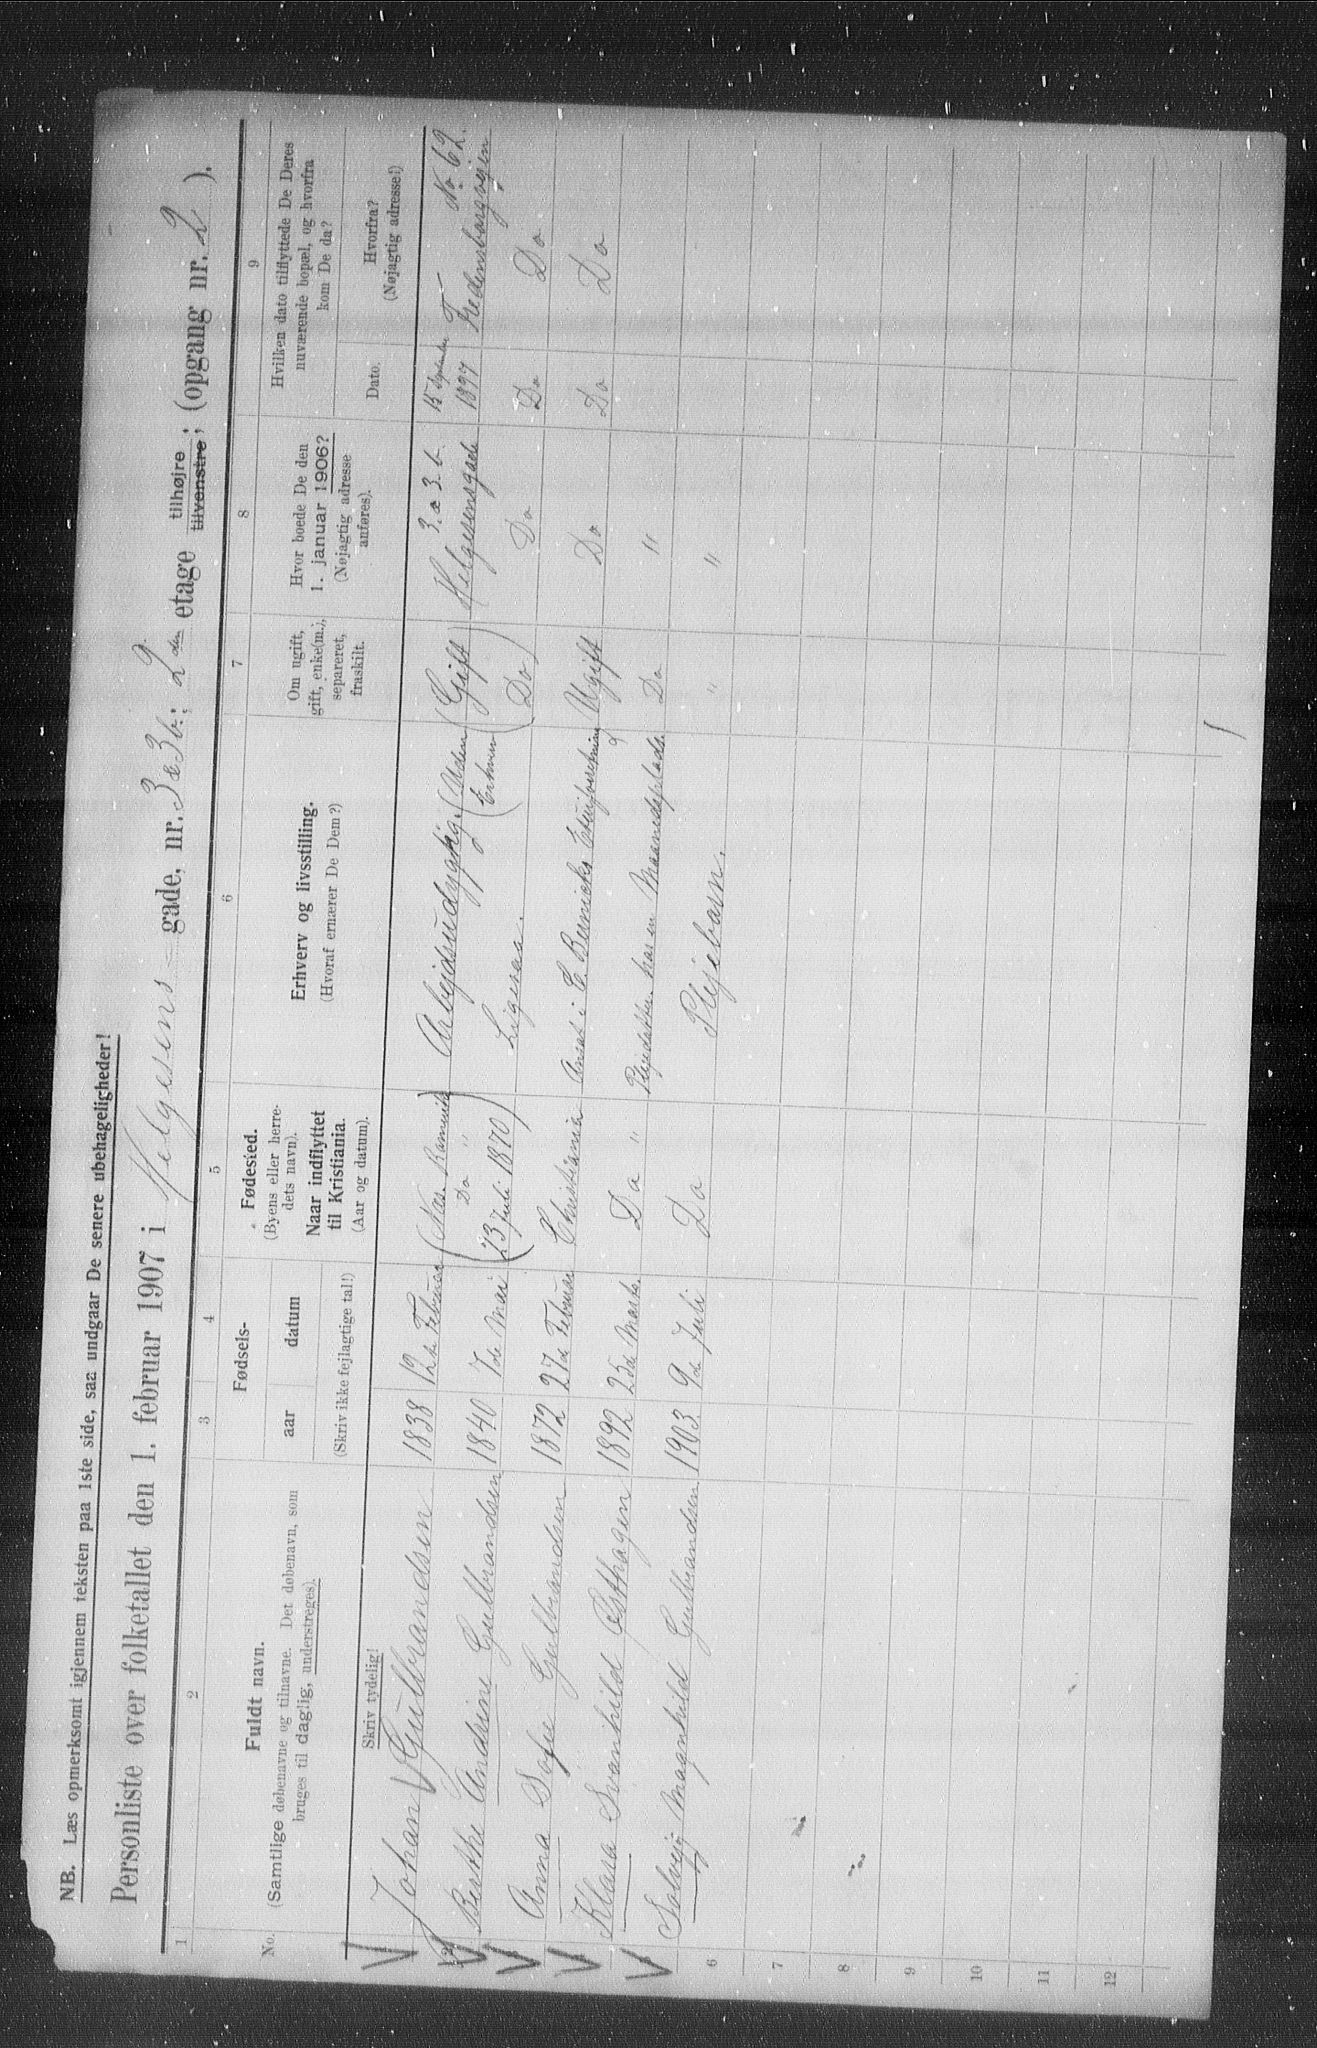 NB. Læs opmerksomt igjennem teksten paa 1ste side, saa undgaar De senere ubehageligheder!
Personliste over folketallet den 1. februar 1907 i Helgesens gade, nr. 3a3b.; 2den etage tilhøjre tilvenstre; (opgang nr. 2).
1 2 3 4 5 6 7 8 9
No.
Fuldt navn.
(Samtlige døbenavne og tilnavne. Det døbenavn, som
bruges til daglig, understreges).
Skriv tydelig!
Fødsels-
aar datum
(Skriv ikke fejlagtige tal!)
Fødested.
(Byens eller herre-
dets navn).
Naar indflyttet
til Kristiania.
(Aar og datum).
Erhverv og livsstilling.
(Hvoraf ernærer De Dem?)
Om ugift,
gift, enke(m.),
separeret,
fraskilt.
Hvor boede De den
1. januar 1906?
(Nøjagtig adresse
anføres).
Hvilken dato tilflyttede De Deres
nuværende bopæl, og hvorfra
kom De da?
Dato.
Hvorfra?
(Nøjagtig adresse!)
Johan Gulbrandsen 1838 12te Februar (Næs. Romerike) Arbejdsudygtig. (Uden Erhverv) (Gift) 3.a 3.b. Helgesensgade 15 September 1897 Fredensborgvejen No 62.
Berthe Andrine Gulbrandsen 1840 7de Mai Do " (23 Juli 1870) Ligesaa. (Do) Do Do Do
Anna Sofie Gulbrandsen 1872 27de Februar Christiania Ansat i C. Bernicks Ugift Do Do Do
Klara Svanhild Østhagen 1892 25de Marts. Do " Plejedatter. har en Maanedsplads. Do "
Solveig Magnhild Gulbrandsen 1903. 9de Juli Do Plejebarn. " "
6
7
8
9
10
11
12